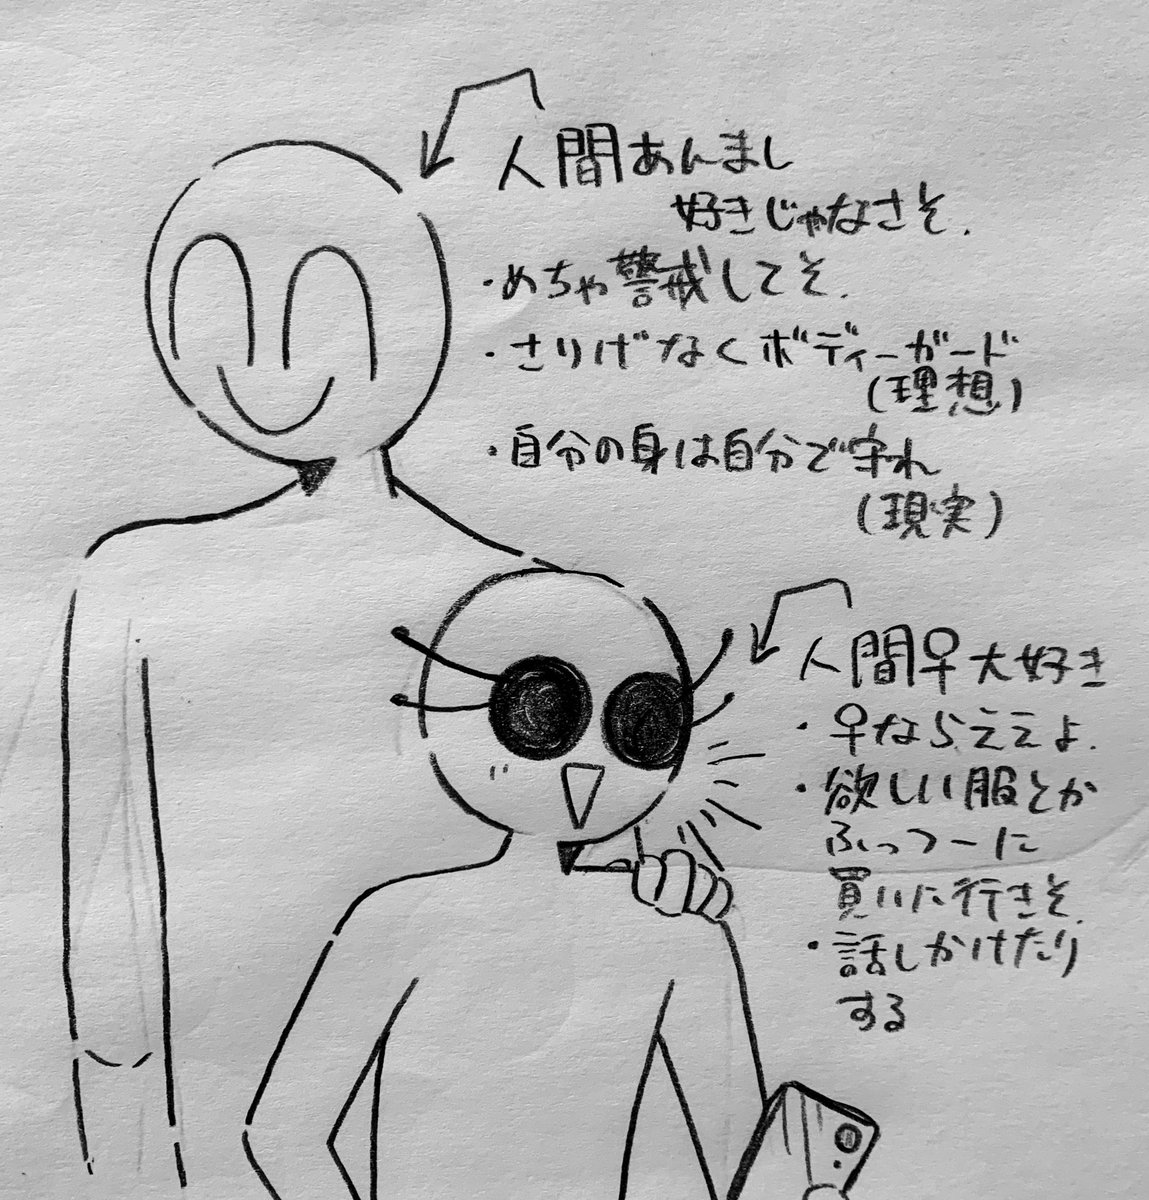 人間あんまし
好きじゃなさそ.
・めちゃ警戒してそ.
・さりげなくボディーガード
(理想)
・自分の身は自分で守れ
(現実)
人間♀大好き
・♀ならええよ.
・欲しい服とか
ふっつーに
買いに行きそ.
・話しかけたり
する